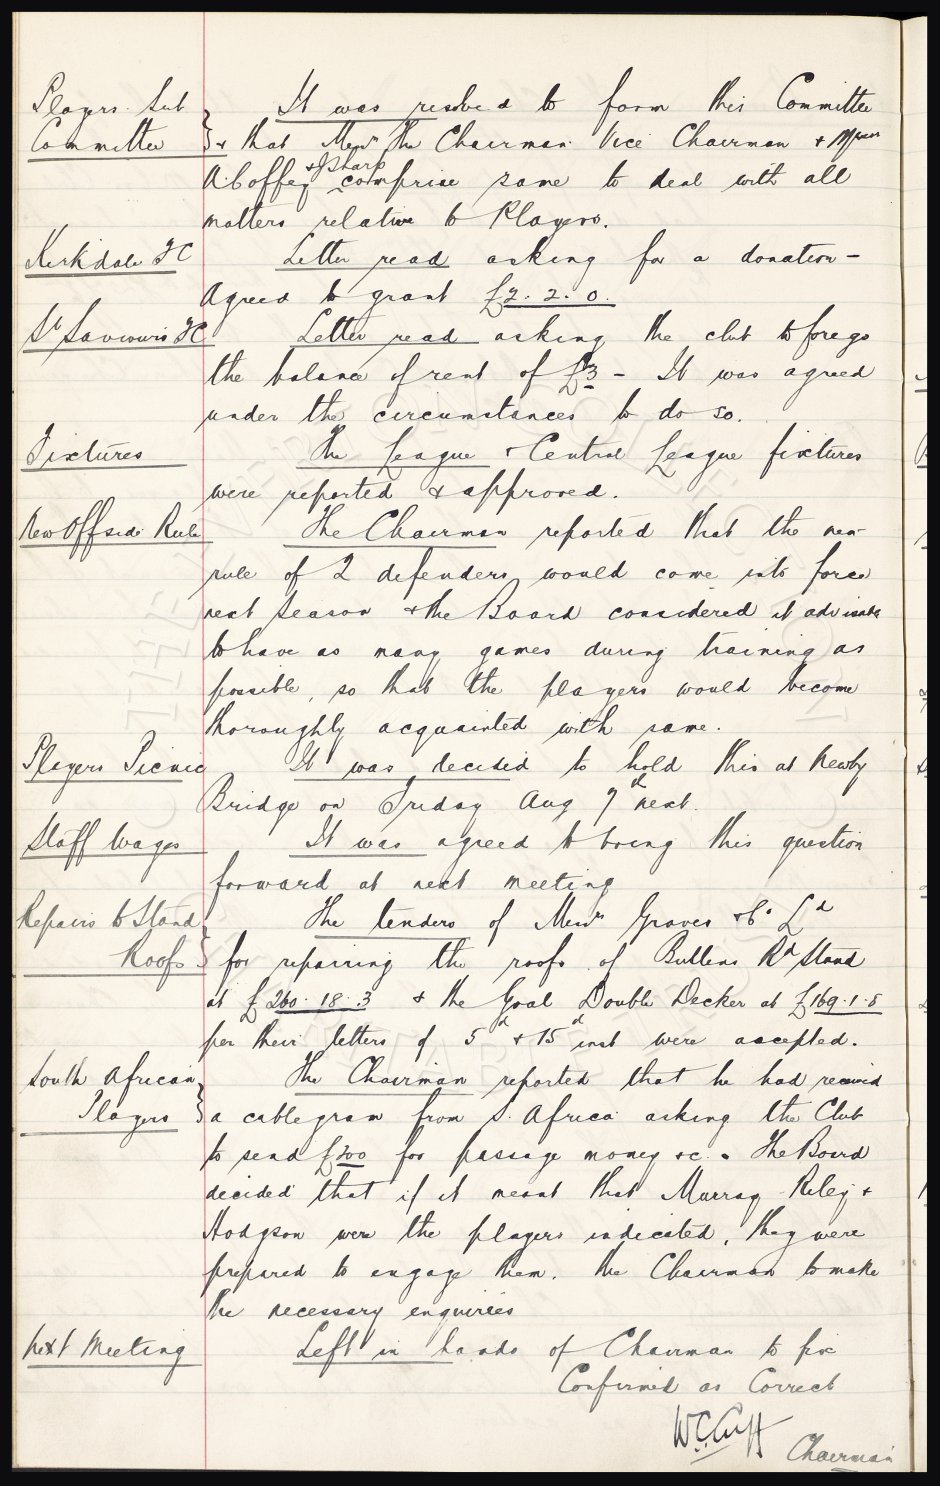 Players Sub Committee
It was resolved to form this Committee
& that Messrs the Chairman Vice Chairman & Messrs
A Coffey & J Sharp comprise same to deal with all
matters relative to Players.
Kirkdale FC
Letter read asking for a donation –
Agreed to grant £2. 2. 0.
St Saviours FC
Letter read asking the club to forego
the balance of rent of £3 – It was agreed
under the circumstances to do so.
Fixtures
The League & Central League fixtures
were reported & approved.
New Offside Rule
The Chairman reported that the new
rule of 2 defenders would come into force
next season & the Board considered it advisable
to have as many games during training as
possible, so that the players would become
thoroughly acquainted with same.
Players Picnic
It was decided to hold this at Newby
Bridge on Friday Aug 7th next.
Staff Wages
It was agreed to bring this question
forward at next meeting
Repairs to Stand
Roofs
The tenders of Messrs Graves & Co Ld
for repairing the roofs of Bullens Rd Stand
at £260. 18. 3 & the Goal Double Decker at £169. 1. 5
per their letters of 5th & 15th inst were accepted.
South African
Players
The Chairman reported that he had received
a cablegram from S. Africa asking the Club
to send £200 for passage money &c. The Board
decided that if it meant that Murray Riley &
Hodgson were the players indicated, they were
prepared to engage them. The Chairman to make
the necessary enquiries
Next Meeting
Left in hands of Chairman to fix
Confirmed as Correct
W.C. Cuff
Chairman